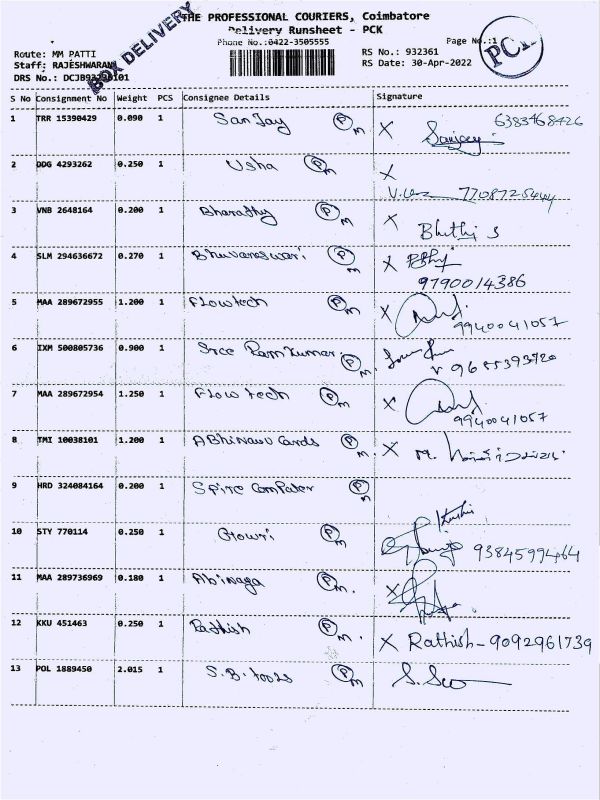 THE PROFESSIONAL COURIERS, Coimbatore
BOX DELIVERY
Delivery Runsheet - PCK
Phone No.:0422-3505555
Page No.:1
PCK
Route: MM PATTI
RS No.: 932361
Staff: RAJESHWARAN
RS Date: 30-Apr-2022
DRS No.: DCJB93
S No Consignment No Weight PCS Consignee Details Signature
1 TRR 15390429 0.090 1 Sanjay PM X Sanjay 6383468426
2 DDG 4293262 0.250 1 Usha PM X
3 VNB 2648164 0.200 1 Bharathy PM X
4 SLM 294636672 0.270 1 Bhuvaneswari PM X 9790014386
5 MAA 289672955 1.200 1 Flowtech PM X 9940041057
6 IXM 500805736 0.900 1 Sree Ramkumar PM.
7 MAA 289672954 1.250 1 Flowtech PM X 9940041057
8 TMI 10038101 1.200 1 Abhinav Cards PM X M.
9 HRD 324084164 0.200 1 Spire Computer PM
10 STY 770114 0.250 1 Gowri PM 9384599464
11 MAA 289736969 0.180 1 Abinaya PM. X
12 KKU 451463 0.250 1 Rathish PM. X Rathish-9092961739
13 POL 1889450 2.015 1 S.B. tools PM